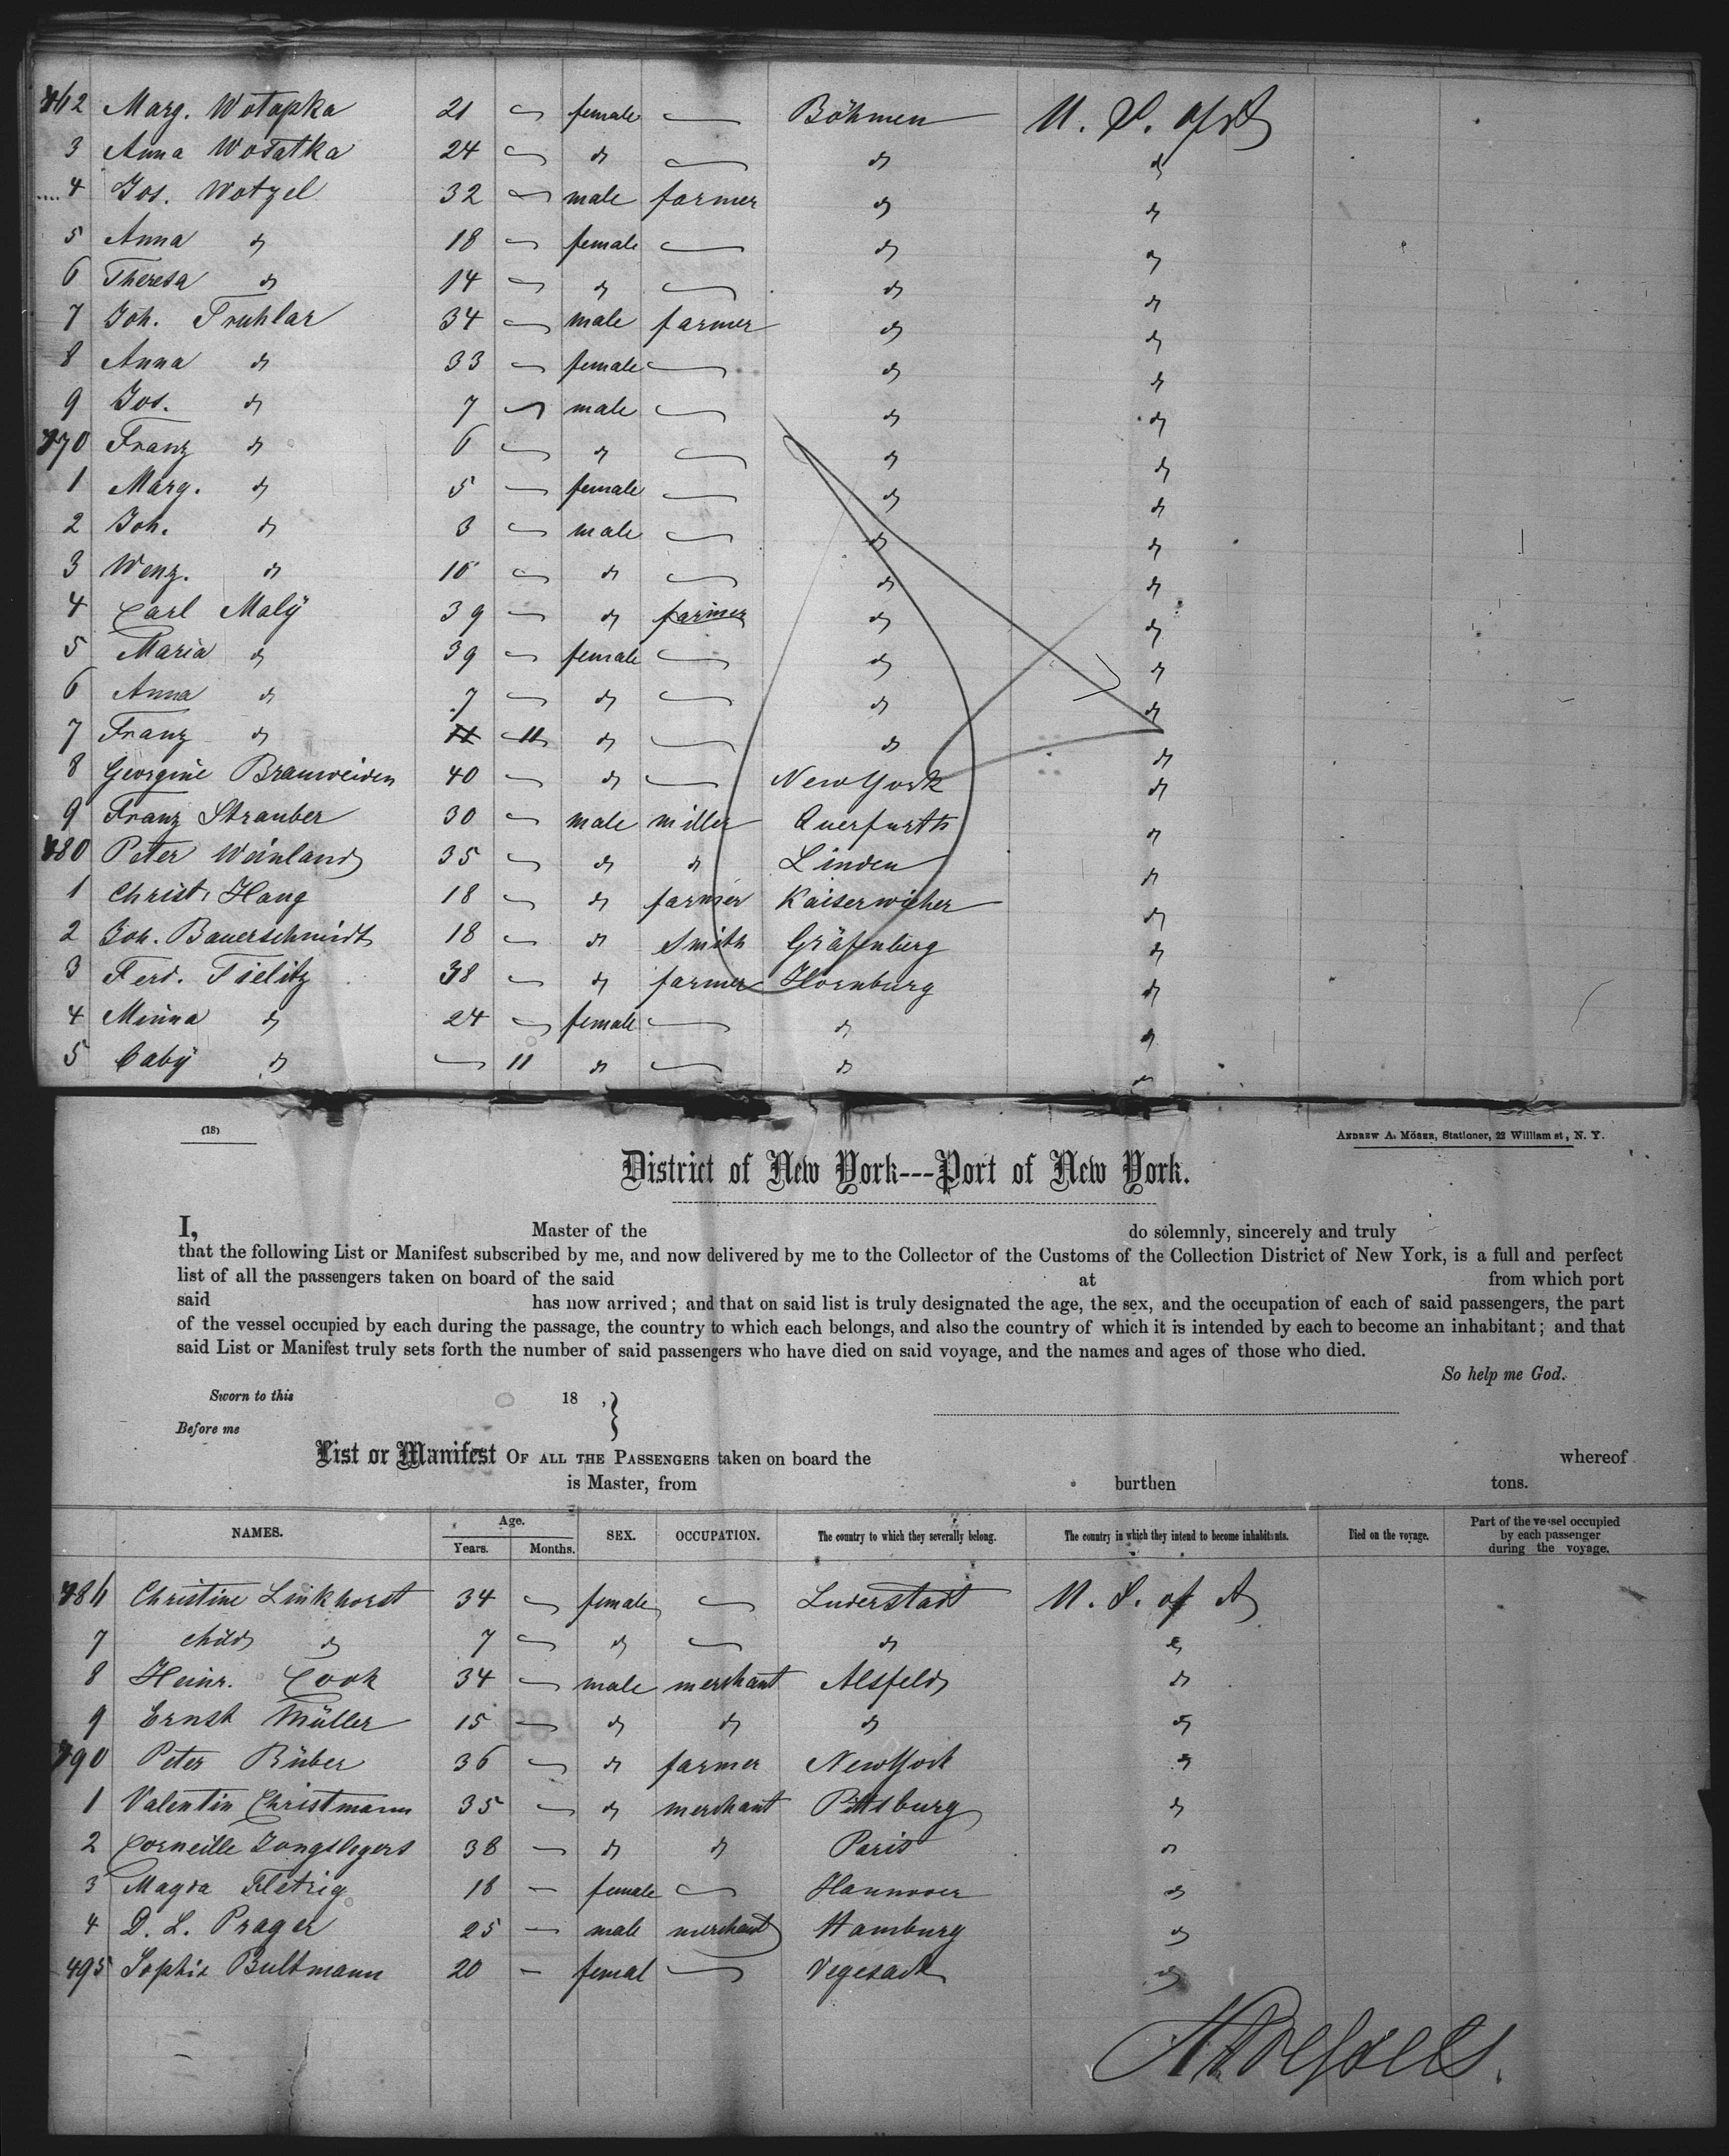 462 Marg. Wotapka 21 — female — Böhmen U. S. of A
3 Anna Wosatka 24 — do — do do
4 Jos. Wotzel 32 — male farmer do do
5 Anna do 18 — female — do do
6 Theresa do 14 — do — do do
7 Joh. Truhlar 34 — male farmer do do
8 Anna do 33 — female — do do
9 Jos. do 7 — male — do do
470 Franz do 6 — do — do do
1 Marg. do 5 — female — do do
2 Joh. do 3 — male — do do
3 Wenz. do — do — do do
4 Carl Malÿ 39 — do farmer do do
5 Maria do 39 — female — do do
6 Anna do 7 — do — do do
7 Franz do 11 do — do do
8 Georgine 40 — do — New York do
9 Franz Strauber 30 — male miller Querfurth do
480 Peter Weinland 35 — do do Linden do
1 Christ. Haug 18 — do farmer do
2 Joh. Bauerschmidt 18 — do Smith Gräfenberg do
3 Ferd. Tielitz 38 — do farmer Hornburg do
4 Minna do 24 — female — do do
5 baby do — 11 do — do do
(18)
ANDREW A. MÖSER, Stationer, 22 William st, N. Y.
District of New York---Port of New York.
I, Master of the do solemnly, sincerely and truly
that the following List or Manifest subscribed by me, and now delivered by me to the Collector of the Customs of the Collection District of New York, is a full and perfect
list of all the passengers taken on board of the said at from which port
said has now arrived; and that on said list is truly designated the age, the sex, and the occupation of each of said passengers, the part
of the vessel occupied by each during the passage, the country to which each belongs, and also the country of which it is intended by each to become an inhabitant; and that
said List or Manifest truly sets forth the number of said passengers who have died on said voyage, and the names and ages of those who died.
So help me God.
Sworn to this 18 ,}
Before me
List or Manifest OF ALL THE PASSENGERS taken on board the whereof
is Master, from burthen tons.
NAMES. Age. Years. Months. SEX. OCCUPATION. The country to which they severally belong. The country in which they intend to become inhabitants. Died on the voyage. Part of the vessel occupied by each passenger during the voyage.
486 Christine Linkhorst 34 — female — Luderstadt U. S. of A
7 child do 7 — do — do do
8 Heinr. Cook 34 — male merchant Alsfeld do
9 Ernst Müller 15 — do do do do
490 Peter Büber 36 — do farmer New York do
1 Valentin Christmann 35 — do merchant Pittsburg do
2 Corneille 38 — do do Paris do
3 Magda 18 — female — Hannover do
4 D. L. Prager 25 — male merchant Hamburg do
495 Sophie Bultmann 20 — femal — Vegesack do